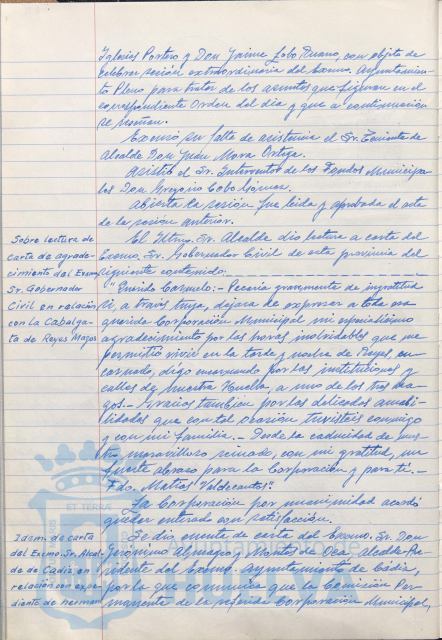 Iglesias Portero y Don Jaime Lobo Ruano, con objeto de
celebrar sesión extraordinaria del Excmo. Ayuntamien-
to Pleno para tratar de los asuntos que figuran en el
correspondiente Orden del día y que a continuación
se reseñan.
Excusó su falta de asistencia el Sr. Teniente de
Alcalde Don Juan Mora Ortiga.
Asistió el Sr. Interventor de los Fondos Municipa-
les Don Gregorio Cobo Gómez.
Abierta la sesión fue leida y aprobada el acta
de la sesión anterior.
Sobre lectura de
carta de agrade-
cimiento del Excmo.
Sr. Gobernador
Civil en relación
con la Cabalga-
ta de Reyes Magos
El Iltmo. Sr. Alcalde dio lectura a carta del
Excmo. Sr. Gobernador Civil de esta provincia del
siguiente contenido:
"Querido Carmelo:- Pecaría gravemente de ingratitud
si, a través tuya, dejara de expresar a toda esa
querida Corporación Municipal mi especialísimo
agradecimiento por las horas inolvidables que me
permitió vivir en la tarde y noche de Reyes, en-
carnado, digo encarnando por las instituciones y
calles de nuestra Huelva, a uno de los tres Ma-
gos.- Gracias también por las delicadas amabi-
lidades que con tal ocasión tuvisteis conmigo
y con mi familia.- Desde la caducidad de nues-
tro maravilloso reinado, con mi gratitud, un
fuerte abrazo para la Corporación y para ti.-
Fdo. Matías Valdecantos".
La Corporación por unanimidad acordó
quedar enterado con satisfacción.
Idem. de carta
del Excmo. Sr. Alcal-
de de Cadiz, en
relación con expe-
diente de herman
Se dio cuenta de carta del Excmo. Sr. Don
Jerónimo Almagro y Montes de Oca, Alcalde-Pre-
sidente del Excmo. Ayuntamiento de Cádiz,
por la que comunica que la Comisión Per-
manente de la referida Corporación Municipal,
ET TERRA